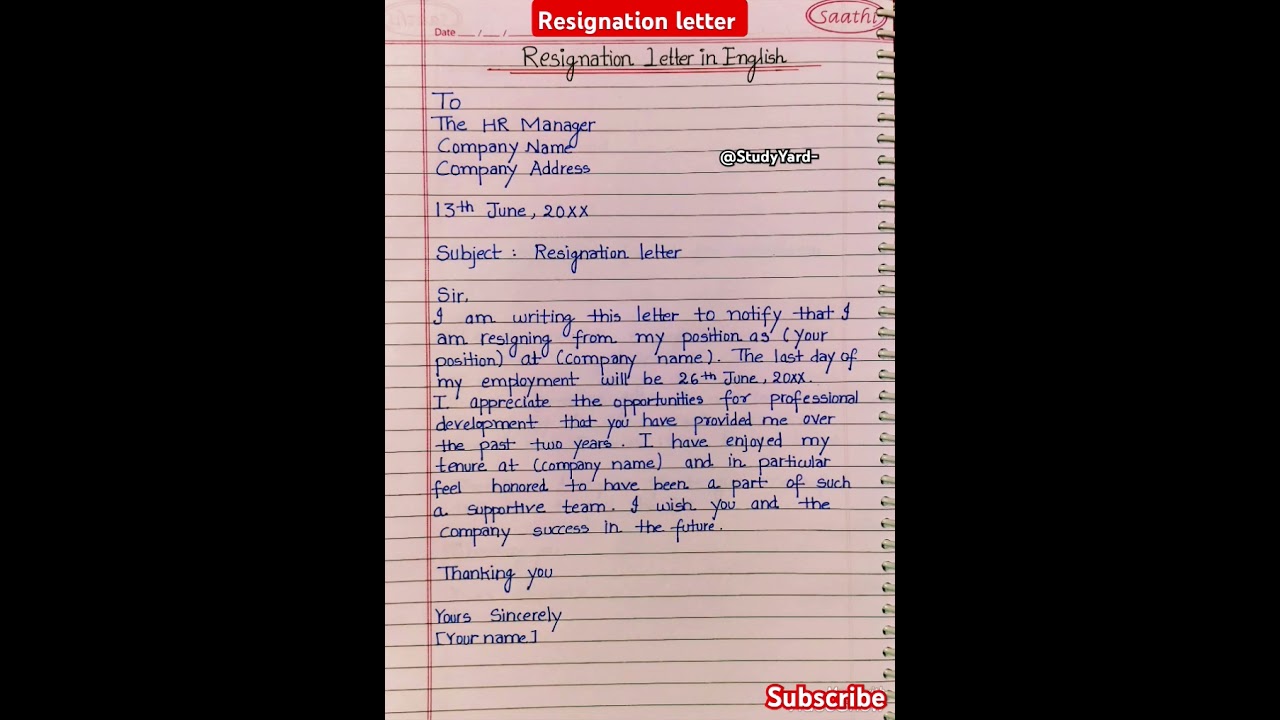 Resignation letter
Saathi
Date __/__/__
Resignation letter in English
To
The HR Manager
Company Name
@StudyYard-
Company Address
13th June, 20XX
Subject : Resignation letter
Sir,
I am writing this letter to notify that I
am resigning from my position as (your
position) at (company name). The last day of
my employment will be 26th June, 20XX.
I appreciate the opportunities for professional
development that you have provided me over
the past two years. I have enjoyed my
tenure at (company name) and in particular
feel honored to have been a part of such
a supportive team. I wish you and the
company success in the future.
Thanking you
Yours Sincerely
[Your name]
Subscribe